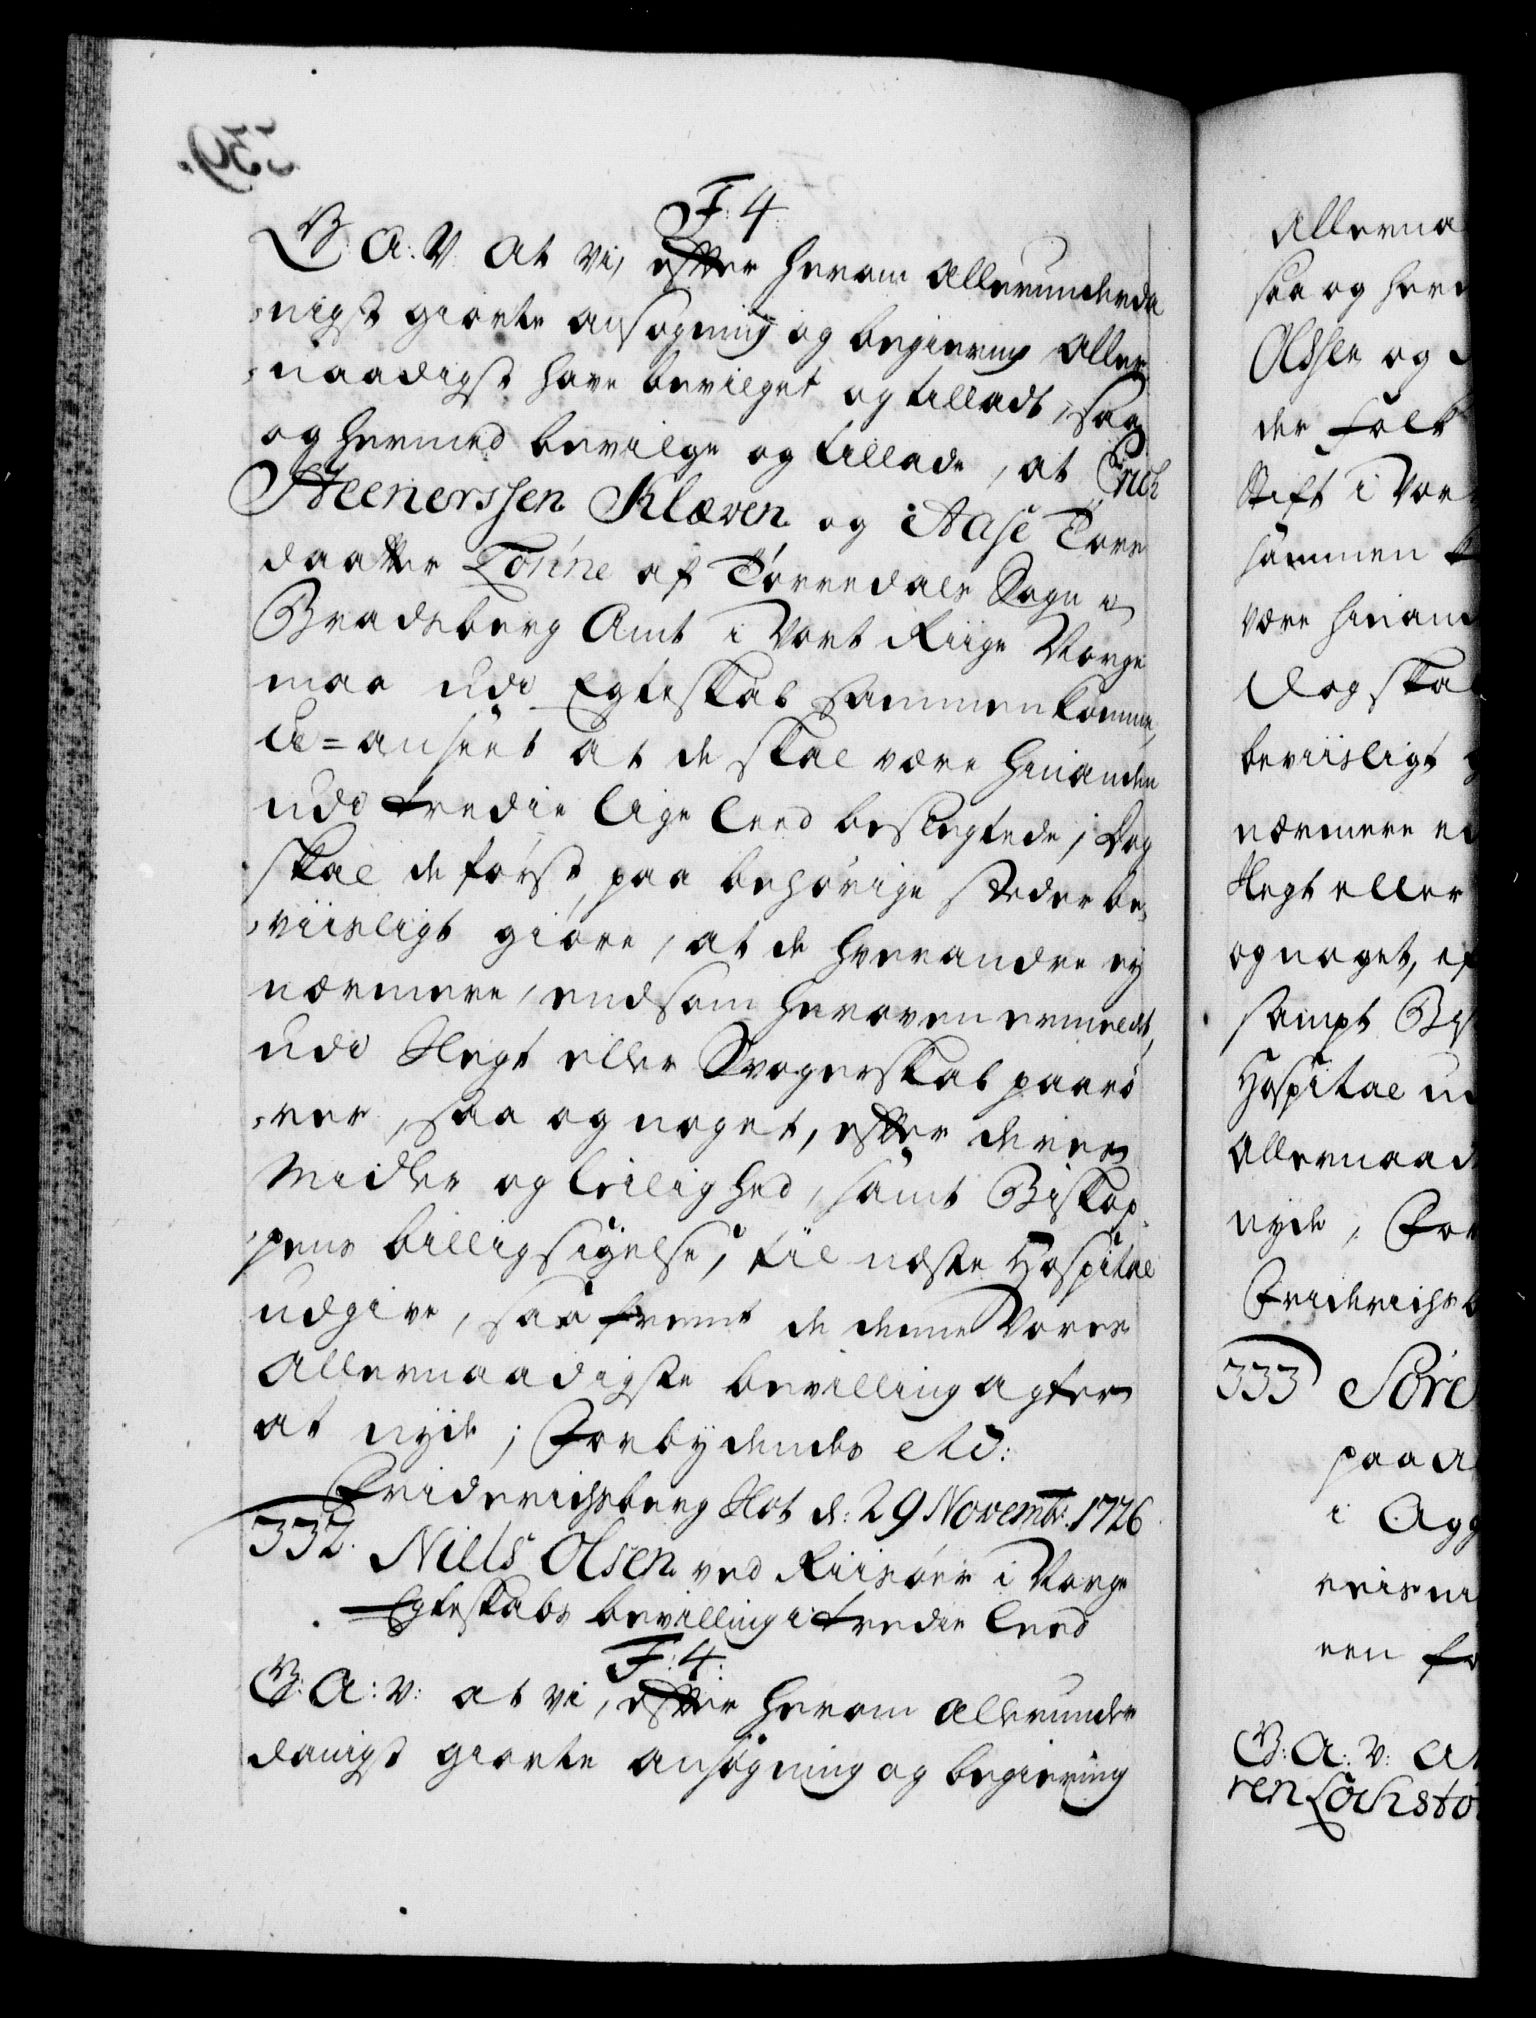 F: 4.
G. A: V. At vi, efter herom allerunderda
„nigst giorte ansøgning og begiering aller
„naadigst have bevilget og tilladt, saa
og hermed bevilge og tillade, at Erich
Steenerssen Klæven og Aase Tore
daatter Tønne af Tørredals Sogn i
Bradsberg Amt i Vort Riige Norge
maa udi Egteskab sammenkomme,
u=anseet at de skal være hinanden
udi tredie lige leed beslegtede; Dog
skal de først, paa behørige stæder be„
„viisligt giøre, at de hverandre ey
nærmere, end som heroven ermeldt,
udi Slegt eller Svogerskab paarø„
„rer, saa og noget, efter deres
Midler og leilighed, samt Biskop
„pens billigsigelse, til næste Hospital
udgive, saafremt de denne Vores
Allernaadigste bevilling agter
at nyde; Forbydendes etc:
Friderichsberg Slot d: 29 Novembr: 1726.
332. Niels Olsen ved Riisøer i Norge
Egteskabs bevilling i tredie leed
F: 4.
G: A: V: at vi, efter herom allerunder
danigst giorte ansøgning og begiering
Allerna
saa og herm
Olssen og
der folk
Stift i Vor
sammen k
være hinand
Dog skal
beviisligt
nærmere en
Slegt eller
og noget, ef
sampt Bis
Hospital ud
Allernaad
nyde; For
Friderichsb
333 Søre
paa A
i Agg
reisni
een fr
G: A: V: At
ren Lochstø